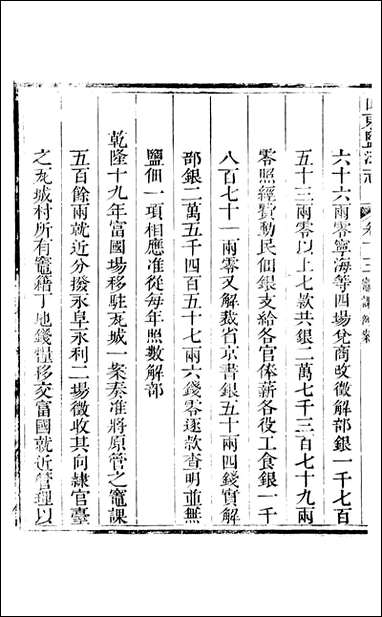 山東鹽法志 卷十三 竈課解案
六十六兩零寧海等四場兌商改徵解部銀一千七百
五十三兩零以上七款共銀二萬七千三百七十九兩
零照經費動民佃銀支給各官俸薪各役工食銀一千
八百七十一兩零又解裁省京書銀五十兩四錢實解
部銀二萬五千四百五十七兩六錢零逐款查明並無
鹽佃一項相應准從每年照數解部
乾隆十九年富國場移駐瓦城一案奏准將原管之竈課
五百餘兩就近分撥永阜永利二場徵收其向隸官臺
之瓦城村所有竈籍丁地錢糧移交富國就近管理以